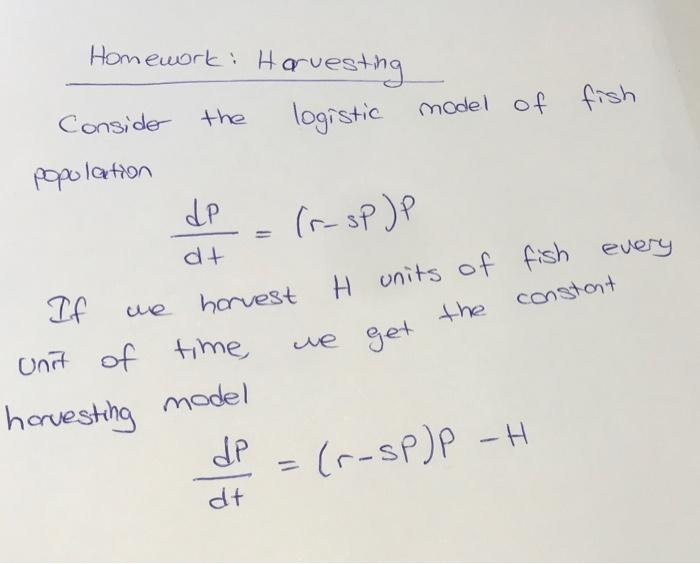 Homework: Harvesting
Consider the logistic model of fish
population
dP/dt = (r-sP)P
If we harvest H units of fish every
unit of time, we get the constant
harvesting model
dP/dt = (r-sP)P - H